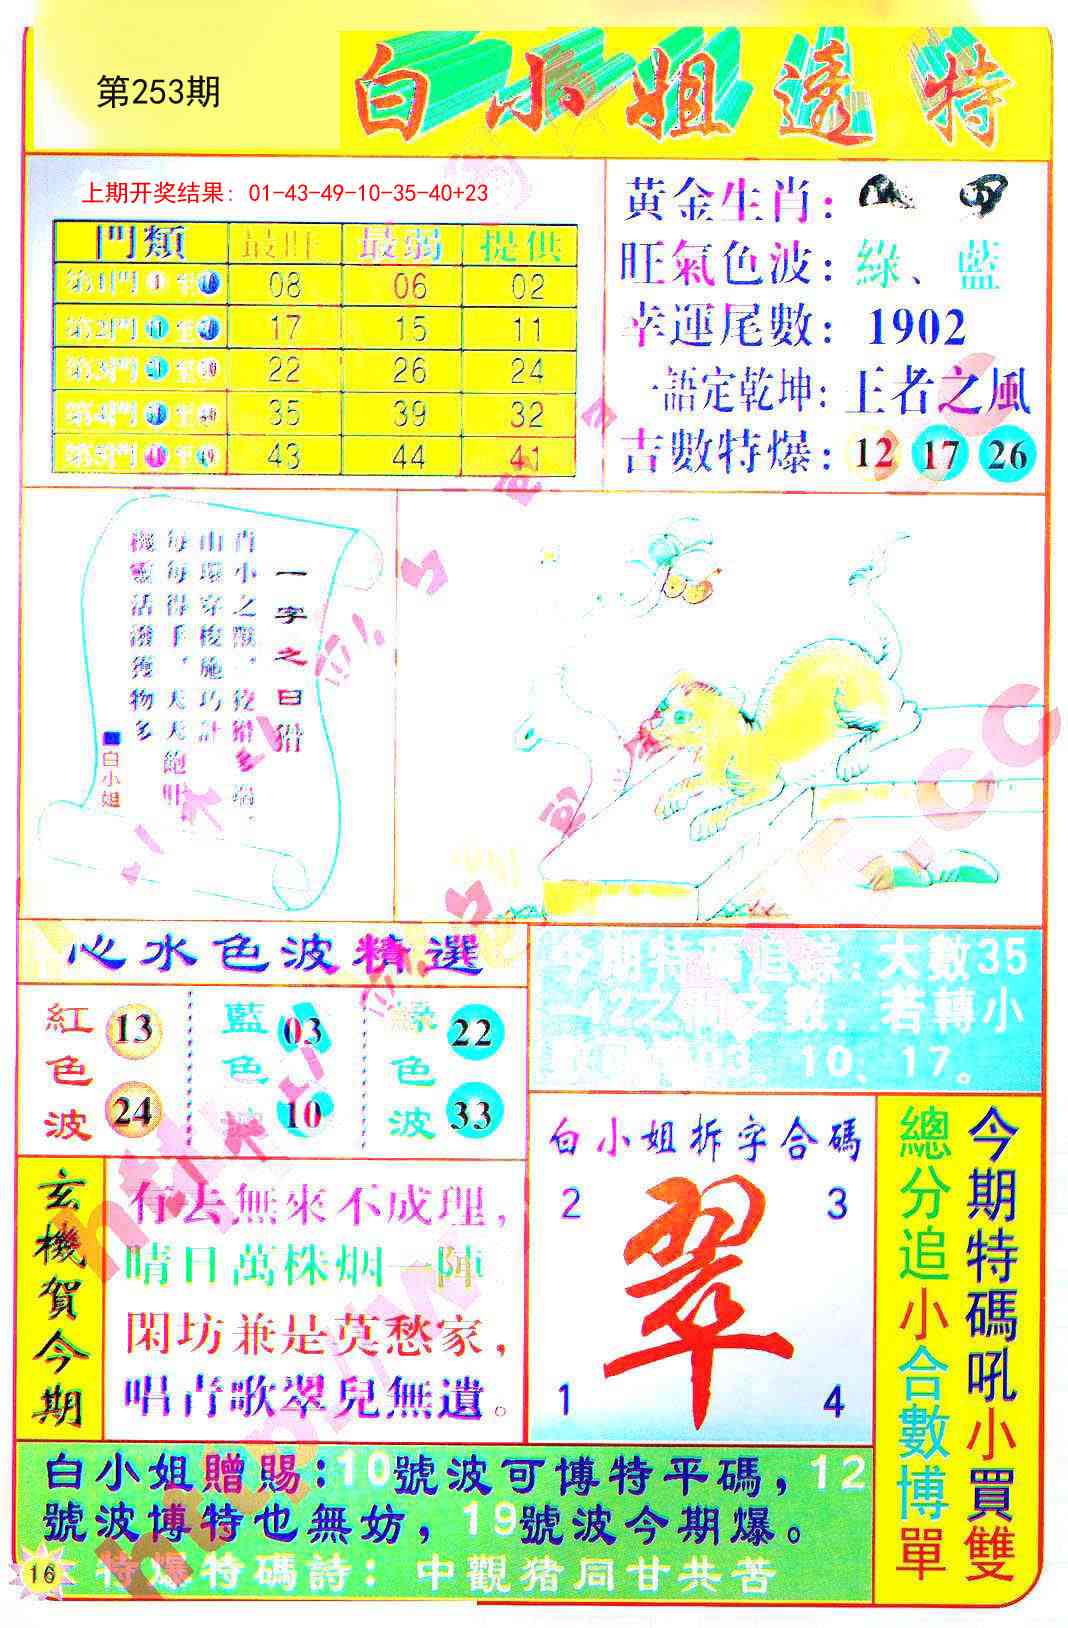 第253期
白小姐透特
上期开奖结果：01-43-49-10-35-40+23
門類 最旺 最弱 提供
第1門 1至10 08 06 02
第2門 11至20 17 15 11
第3門 21至30 22 26 24
第4門 31至40 35 39 32
第5門 41至49 43 44 41
黃金生肖：
旺氣色波：綠、藍
幸運尾數：1902
一語定乾坤：王者之風
吉數特爆：12 17 26
一字之曰
肖小之獸
山環穿梭施巧計
每每得手，天天飽
機靈活潑獲物多
白小姐
心水色波精選
紅色波 13 24
藍色波 03 10
綠色波 22 33
今期特碼追蹤：大數35
42之間之數，若轉小
03、10、17。
玄機賀今期
有去無來不成理，
晴日萬株烟一陣
閑坊兼是莫愁家，
唱青歌翠兒無遺。
白小姐拆字合碼
2 3
翠
1 4
今期特碼吼小買雙
總分追小合數博單
白小姐贈賜：10號波可博特平碼，12
號波博特也無妨，19號波今期爆。
特爆特碼詩：中觀猪同甘共苦
16